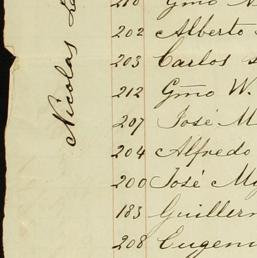 210 Gmo
202 Alberto
203 Carlos
212 Gmo W.
207 José M
204 Alfredo
200 José My
183 Guillerm
208 Eugeni
Nicolas